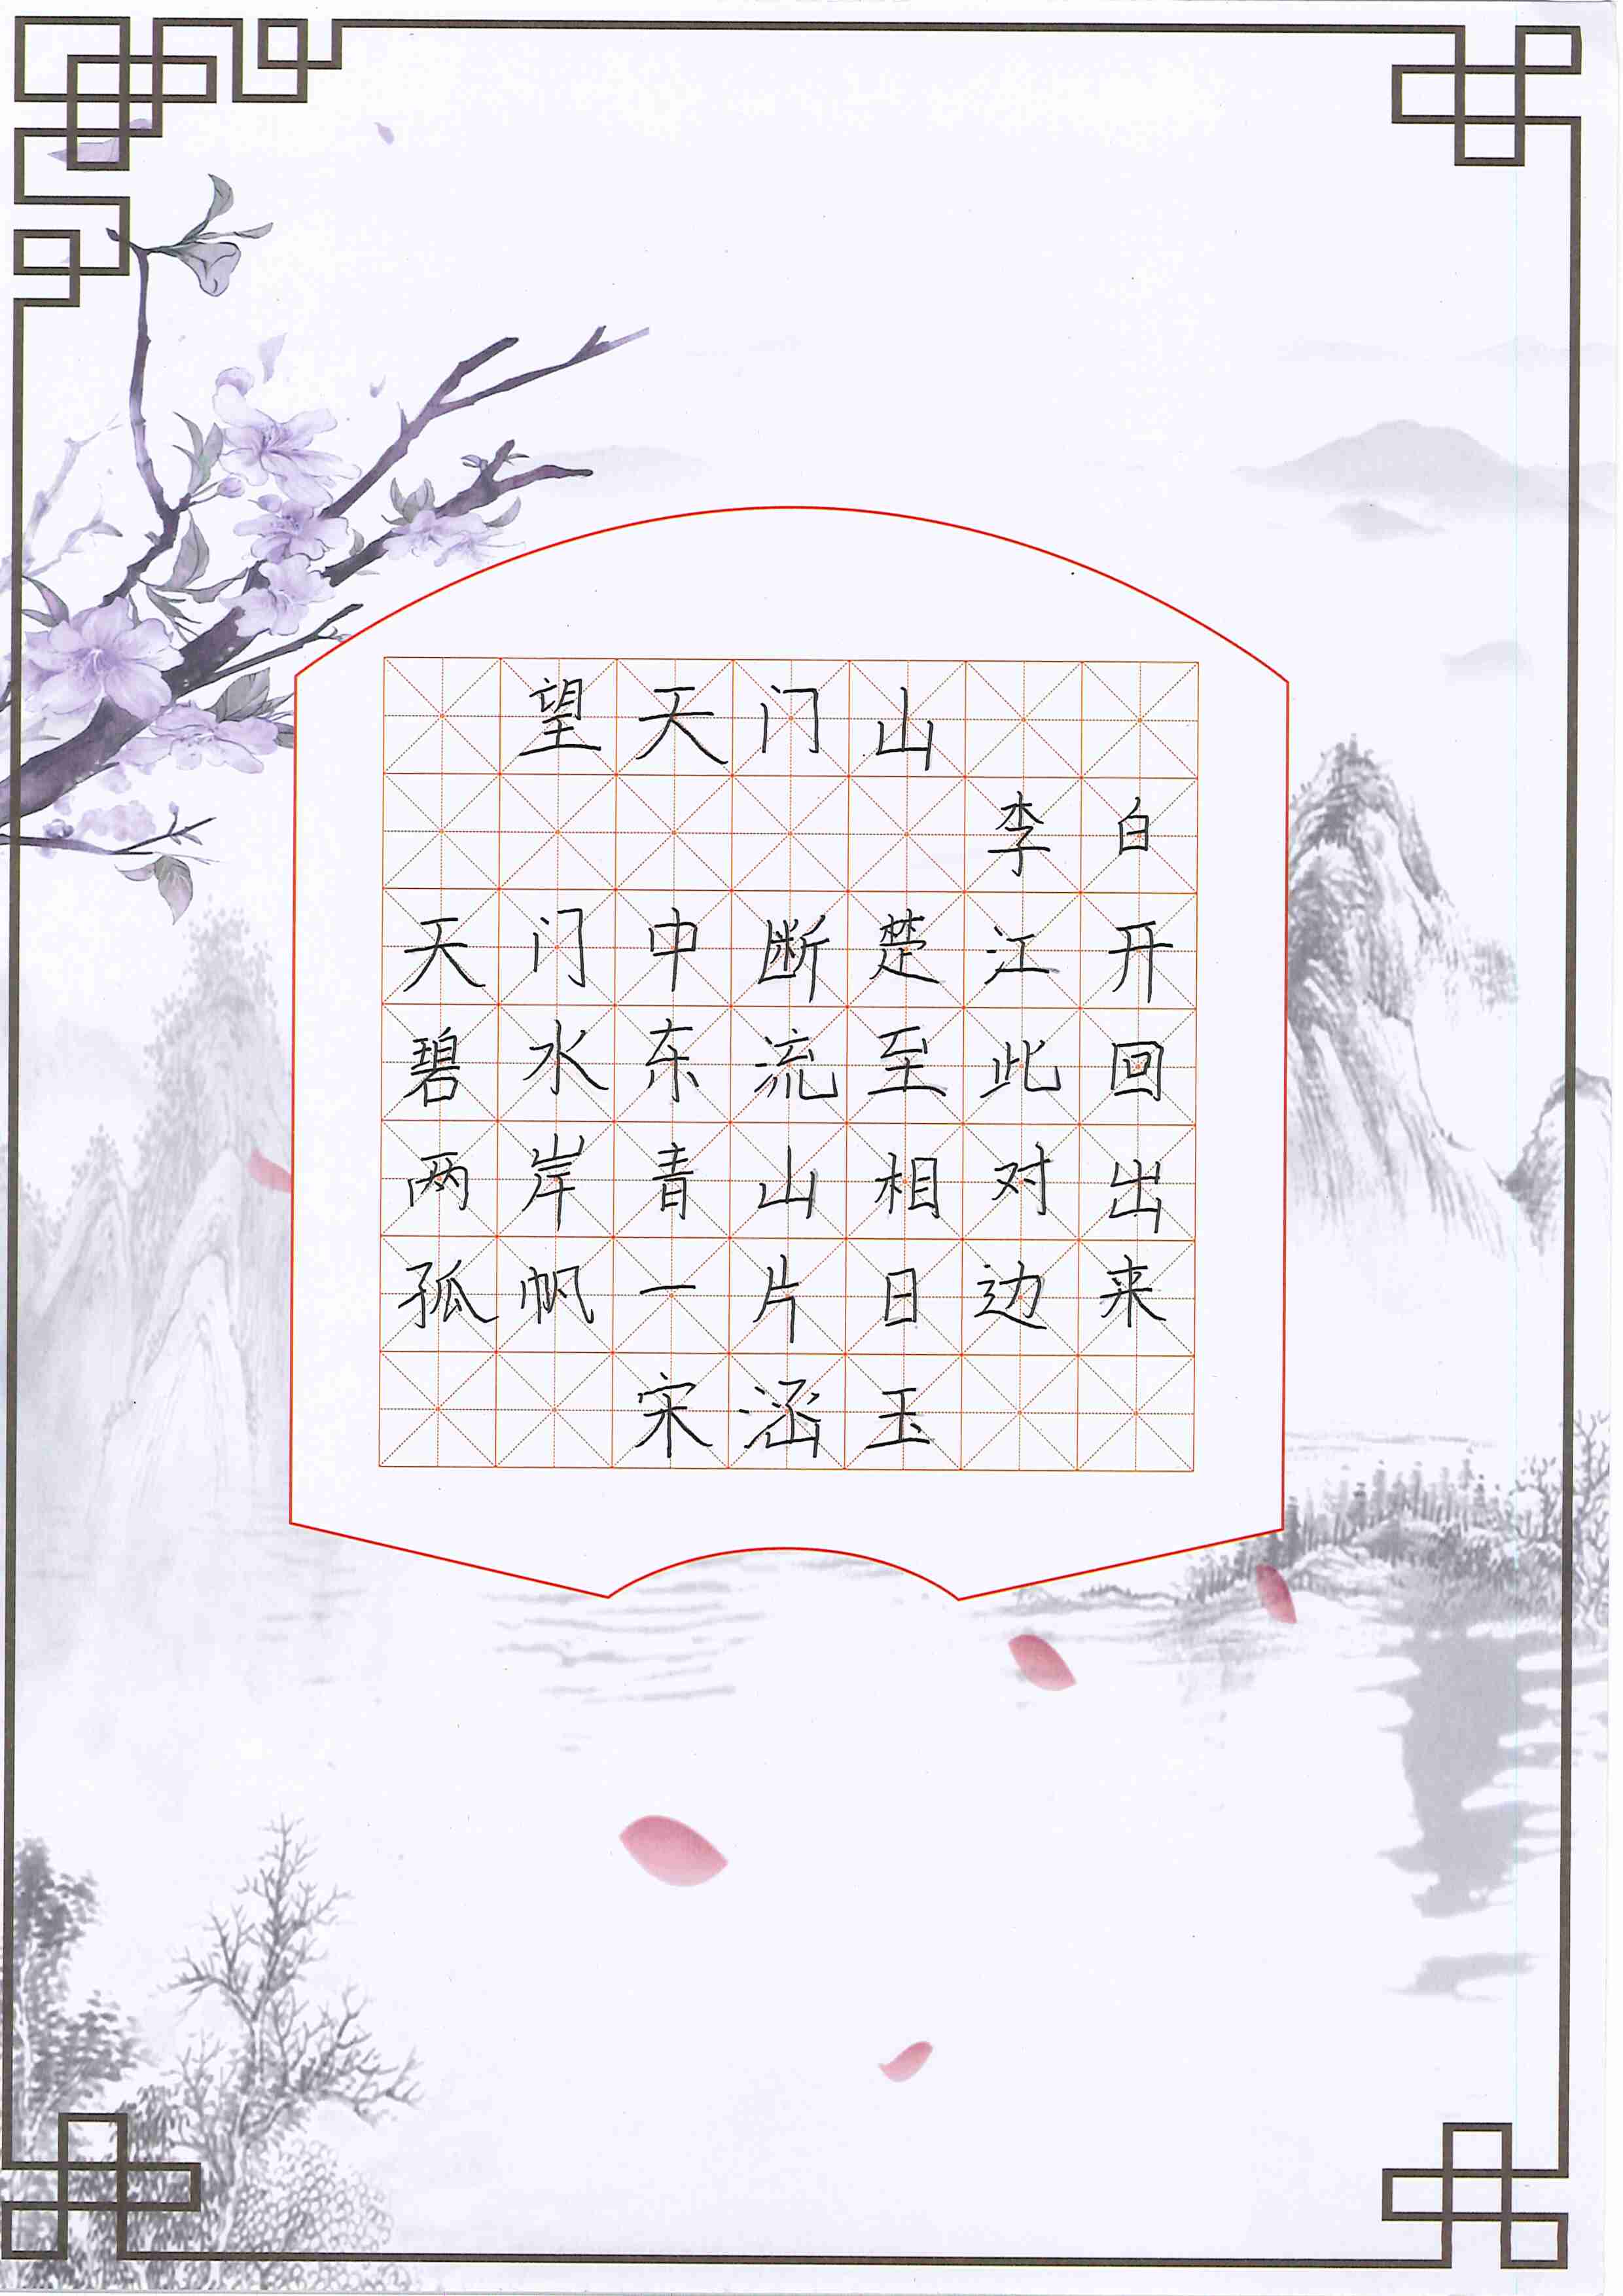 望天门山
李白
天门中断楚江开
碧水东流至此回
两岸青山相对出
孤帆一片日边来
宋涵玉